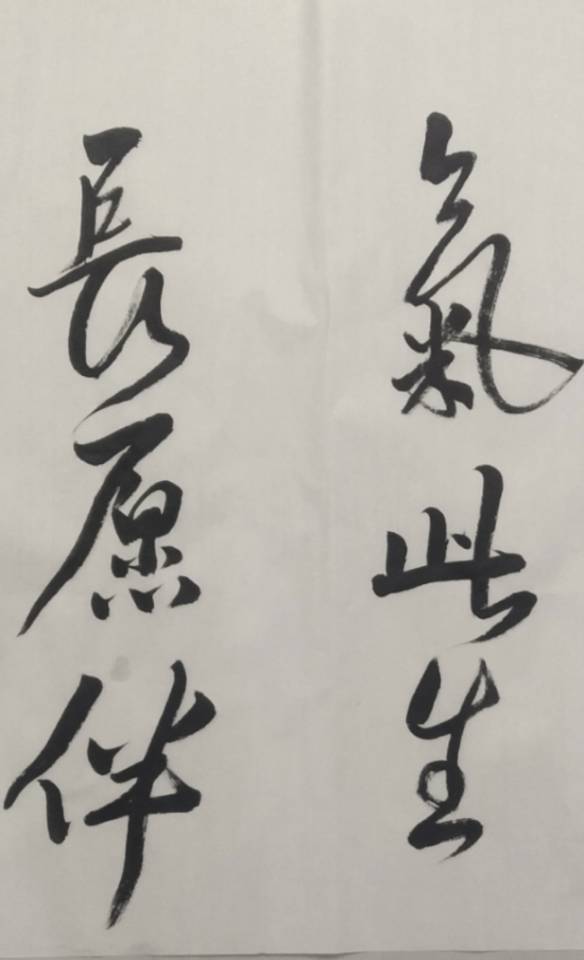 氣此生
長愿伴